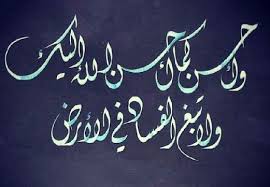 وأحسن كما أحسن الله إليك
ولا تبغ الفساد في الأرض